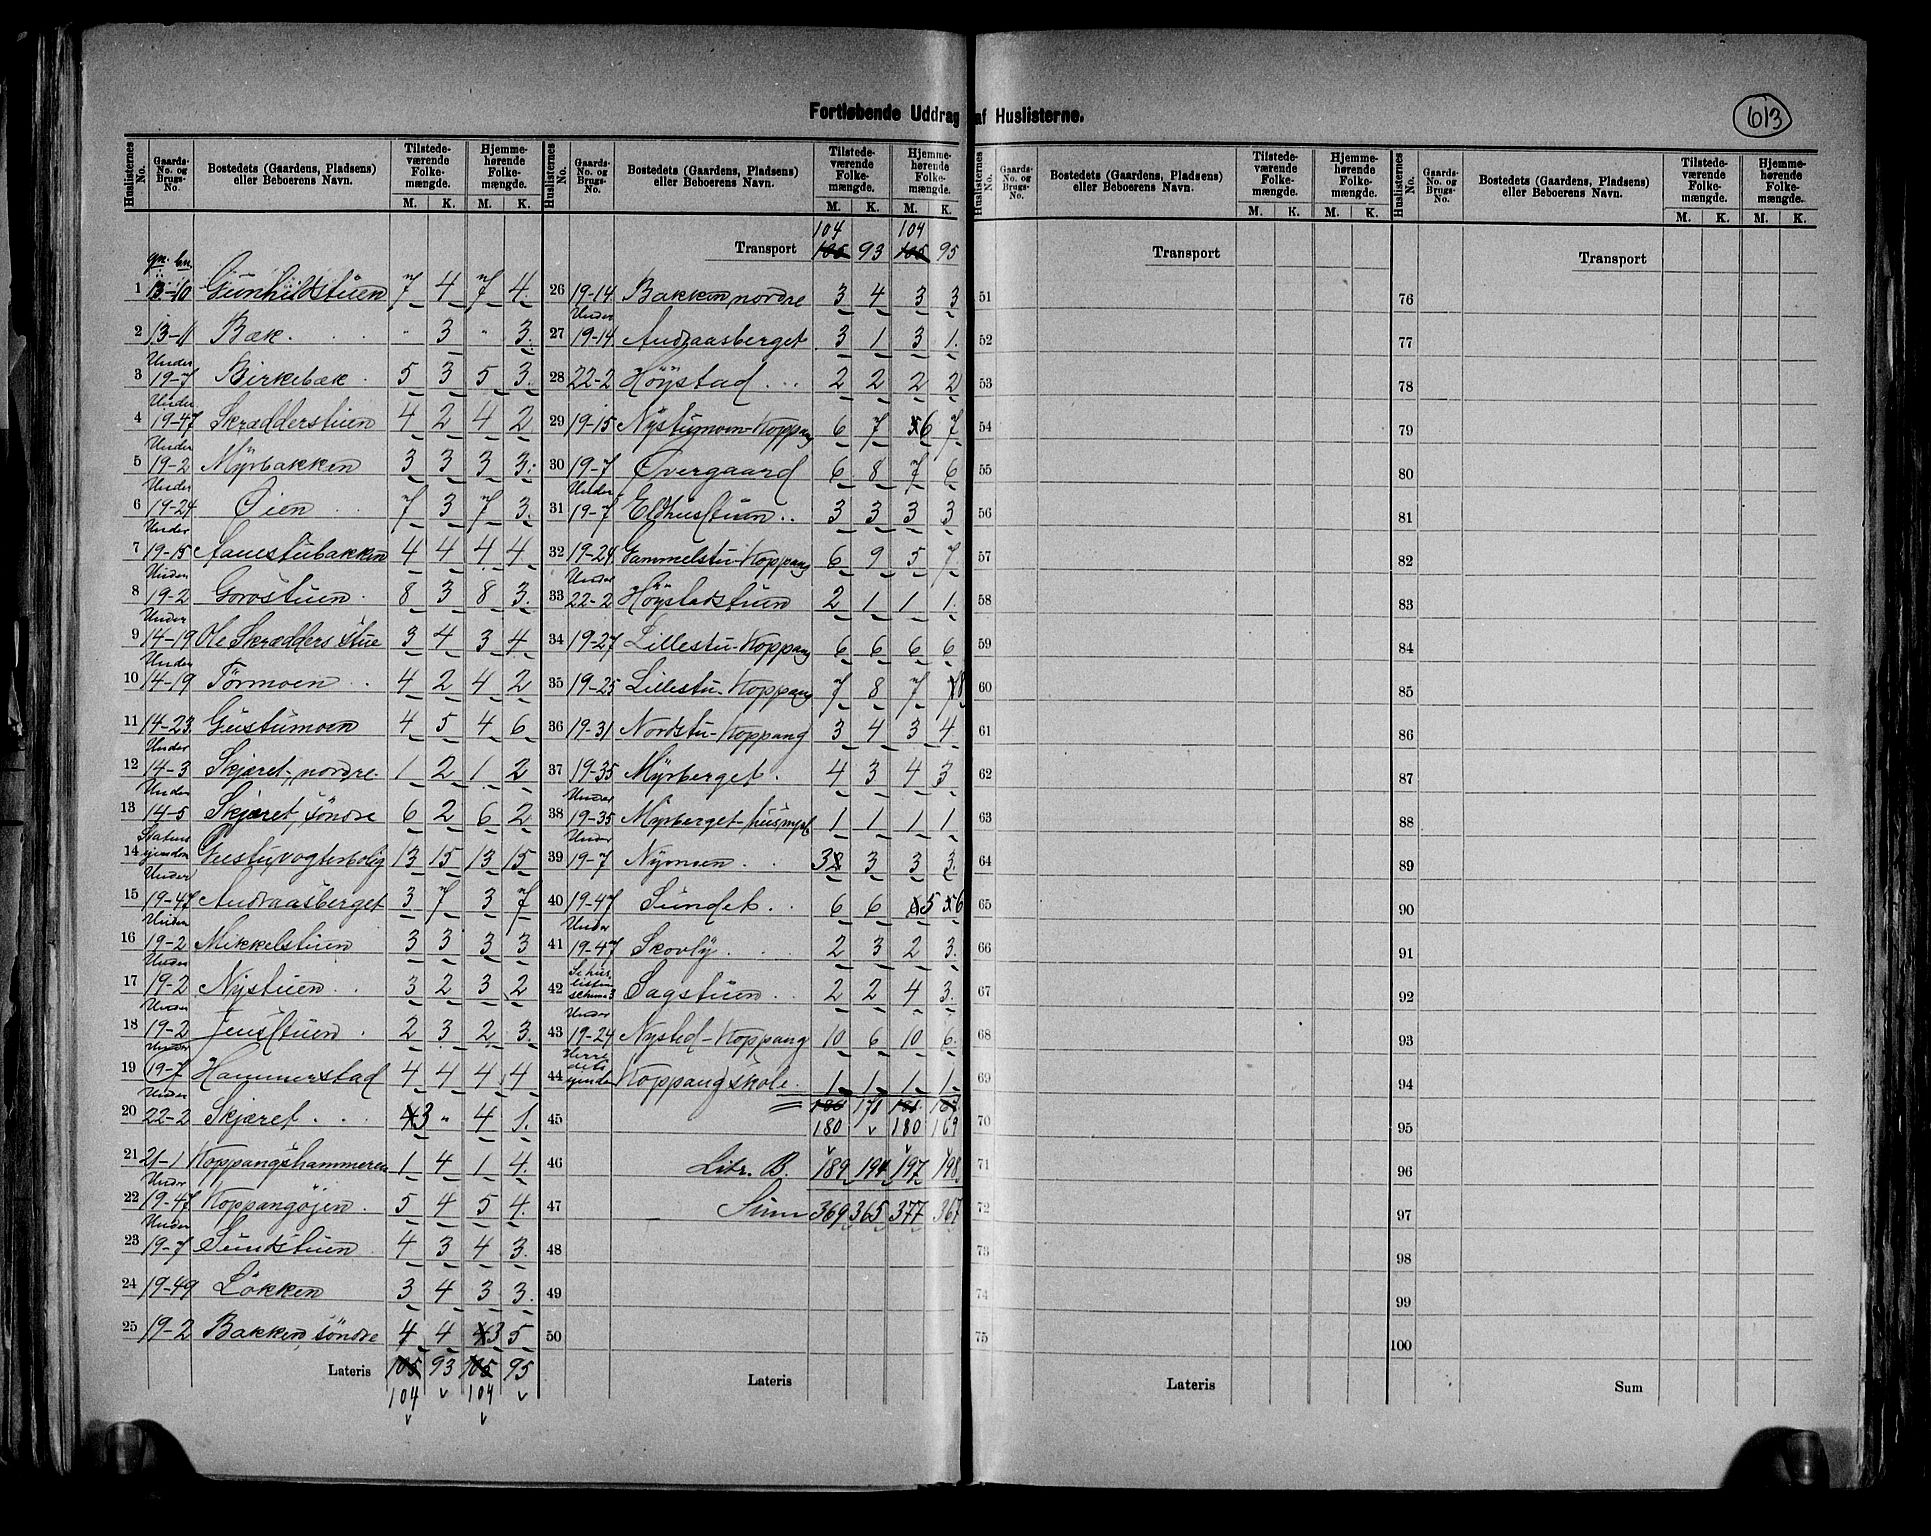 Fortløbende Uddrag af Huslisterne.
613
Huslisternes No. | Gaards-No. og Brugs-No. | Bostedets (Gaardens, Pladsens) eller Beboerens Navn. | Tilstedeværende Folkemængde. M. K. | Hjemmehørende Folkemængde. M. K.
gn. bn.
1 13-10 Gunhildstuen 7 4 7 4
2 13-11 Bæk. " 3 " 3.
3 Under 19-7 Birkebæk 5 3 5 3.
4 Under 19-47 Skrædderstuen 4 2 4 2
5 Under 19-2 Myrbakken 3 3 3 3.
6 Under 19-24 Öien 7 3 7 3.
7 Under 19-15 Aanestubakken 4 4 4 4
8 Under 19-2 Gorostuen 8 3 8 3.
9 Under 14-19 Ole Skrædders stue 3 4 3 4
10 Under 14-19 Törmoen 4 2 4 2
11 14-23 Gustumoen 4 5 4 6
12 Under 14-3 Skjæret, nordre. 1 2 1 2
13 Under 14-5 Skjæret, söndre 6 2 6 2
14 Statens eiendom Gustuvogterbolig 13 15 13 15
15 Under 19-47 Andraasberget 3 7 3 7
16 Under 19-2 Mikkelstuen 3 3 3 3
17 Under 19-2 Nystuen 3 2 3 2
18 Under 19-2 Jensstuen 2 3 2 3.
19 Under 19-7 Hammerstad 4 4 4 4
20 Under 22-2 Skjæret 4 3 " 4 1.
21 21-1 Koppangshammeren 1 4 1 4.
22 Under 19-47 Koppangöjen. 5 4 5 4.
23 Under 19-7 Sundstuen 4 3 4 3.
24 19-49 Lökken 3 4 3 3.
25 19-2 Bakken, söndre 4 4 4 3 5
Lateris 105 93 105 95
104 v 104 v
v v
Huslisternes No. | Gaards-No. og Brugs-No. | Bostedets (Gaardens, Pladsens) eller Beboerens Navn. | Tilstedeværende Folkemængde. M. K. | Hjemmehørende Folkemængde. M. K.
104 104
Transport 105 93 105 95
26 19-14 Bakken nordre 3 4 3 3
27 Under 19-14 Andraasberget 3 1 3 1.
28 22-2 Höystad 2 2 2 2
29 19-15 Nystumoen-Koppang 6 7 5 6 7
30 19-7 Övergaard 6 8 7 6
31 Under 19-7 Eldhusstuen 3 3 3 3
32 19-24 Gammelstu-Koppang 6 9 5 7
33 Under 22-2 Höystadstuen 2 1 1 1.
34 19-27 Lillestu-Koppang 6 6 6 6
35 19-25 Lillestu-Koppang 7 8 7 8
36 19-31 Nordstu-Koppang 3 4 3 4
37 19-35 Myrberget. 4 3 4 3
38 Under 19-35 Myrberget-husmpl. 1 1 1 1
39 Under 19-7 Nymoen 3 3 3 3.
40 19-47 Sundet 6 6 5 6
41 Under 19-47 Skovly 2 3 2 3.
42 Se huslisten schema 3 Sagstuen 2 2 4 3.
43 Under 19-24 Nysted-Koppang 10 6 10 6.
44 Herredets eiendom Koppang skole. 1 1 1 1.
45 171
180 v 180 169
46 Litr. B. 189 194 197 198
47 Sum 369 365 377 367
48
49
50
Lateris
Huslisternes No. | Gaards-No. og Brugs-No. | Bostedets (Gaardens, Pladsens) eller Beboerens Navn. | Tilstedeværende Folkemængde. M. K. | Hjemmehørende Folkemængde. M. K.
Transport
51
52
53
54
55
56
57
58
59
60
61
62
63
64
65
66
67
68
69
70
71
72
73
74
75
Lateris
Huslisternes No. | Gaards-No. og Brugs-No. | Bostedets (Gaardens, Pladsens) eller Beboerens Navn. | Tilstedeværende Folkemængde. M. K. | Hjemmehørende Folkemængde. M. K.
Transport
76
77
78
79
80
81
82
83
84
85
86
87
88
89
90
91
92
93
94
95
96
97
98
99
100
Sum